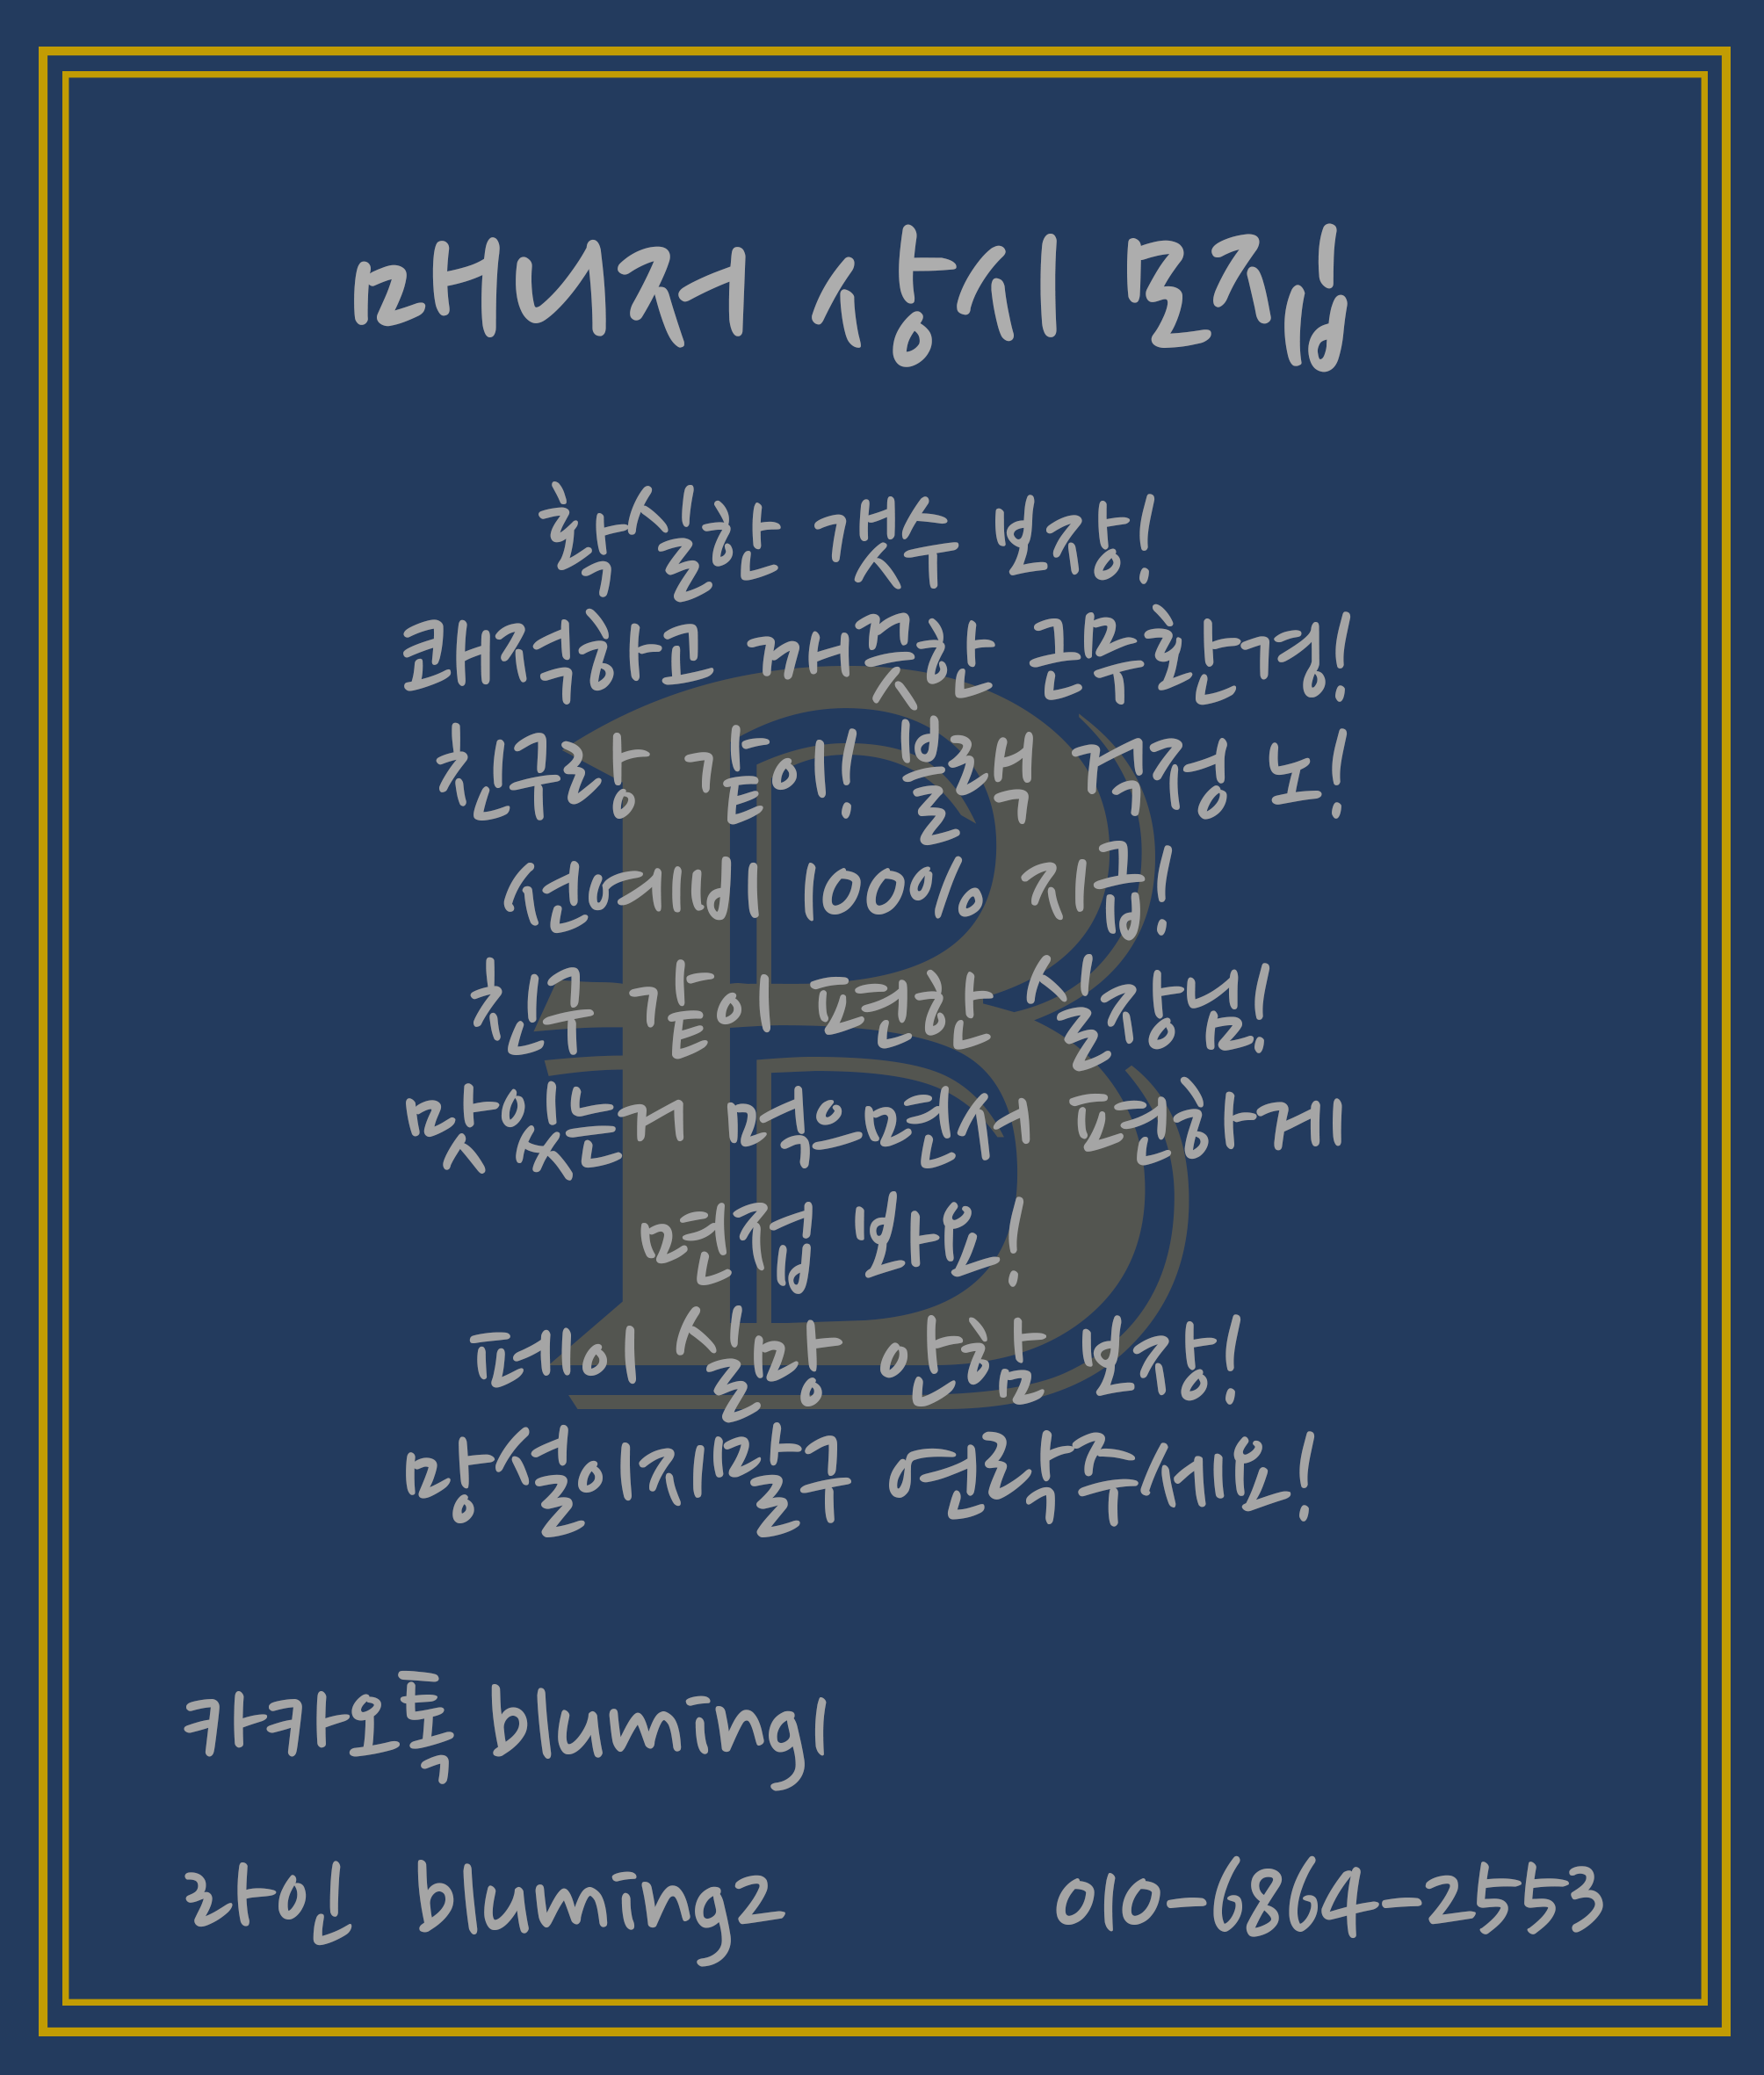 매니저 상시 모집
확실한 갯수 보장!
쾌적하고 깨끗한 근무환경!
친구랑 같이! 블랙 걱정 노!
선예비 100% 지급!
친구 같이 편한 실장님!
맛있는거 먹으면서 편하게
면접 봐요!
페이 실망 안함 보장!
망설이지말구 연락주세요!
카카오톡 bluming1
라인 bluming2
010-6864-2553
B